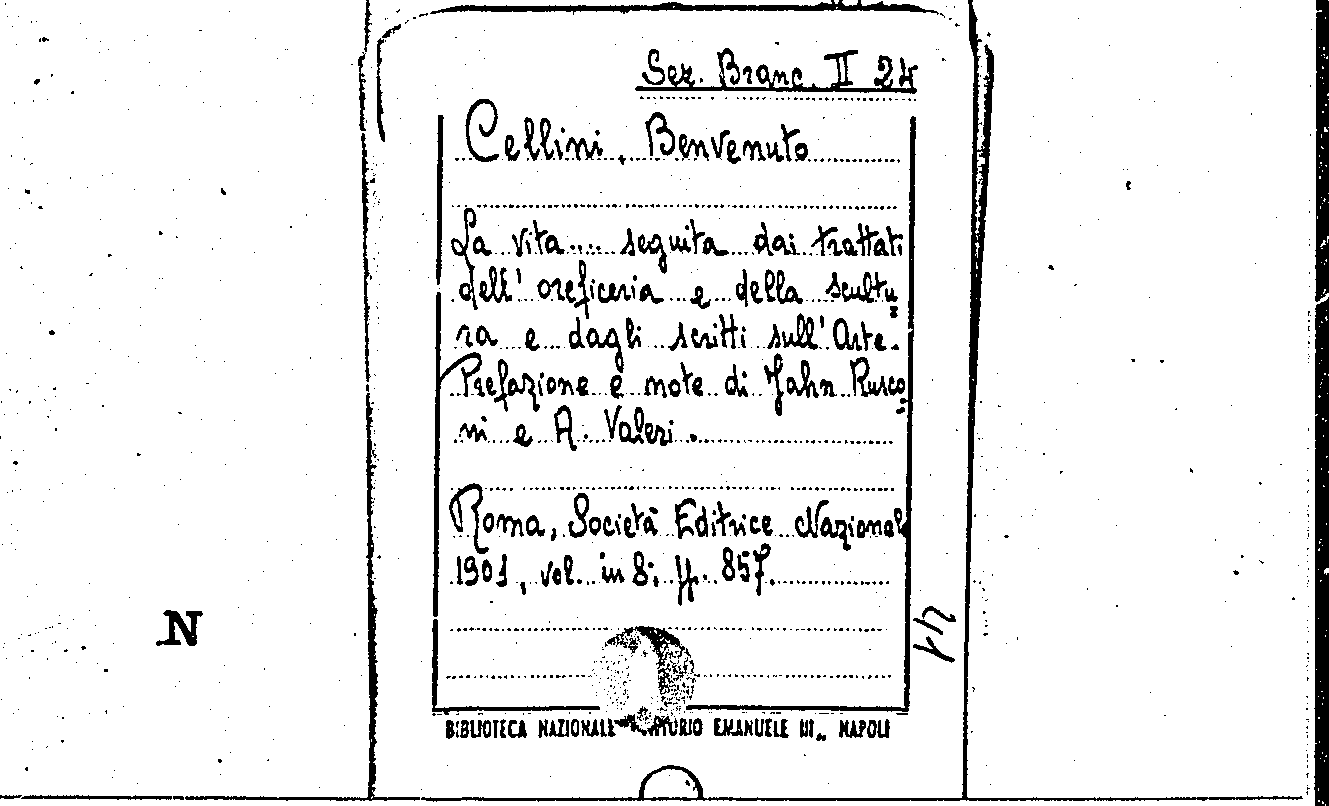 Sez. Branc. II 24
Cellini, Benvenuto
La vita.... seguita dai trattati
dell'oreficeria e della scultu=
ra e dagli scritti sull'Arte.
Prefazione e note di Jahn Rusco=
ni e A. Valeri.
Roma, Società Editrice Nazionale
1901, vol. in 8°, ff. 857.
44
N
BIBLIOTECA NAZIONALE VITTORIO EMANUELE III„ NAPOLI